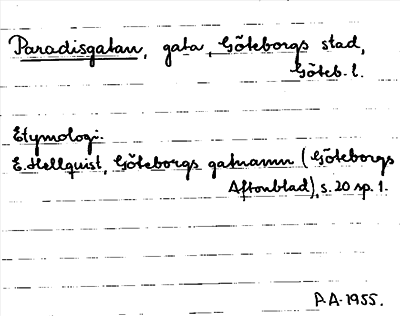 Paradisgatan, gata, Göteborgs stad,
Göteb. l.
Etymologi:
E. Hellquist, Göteborgs gatnamn (Göteborgs
Aftonblad), s. 20 sp. 1.
P.A. 1955.